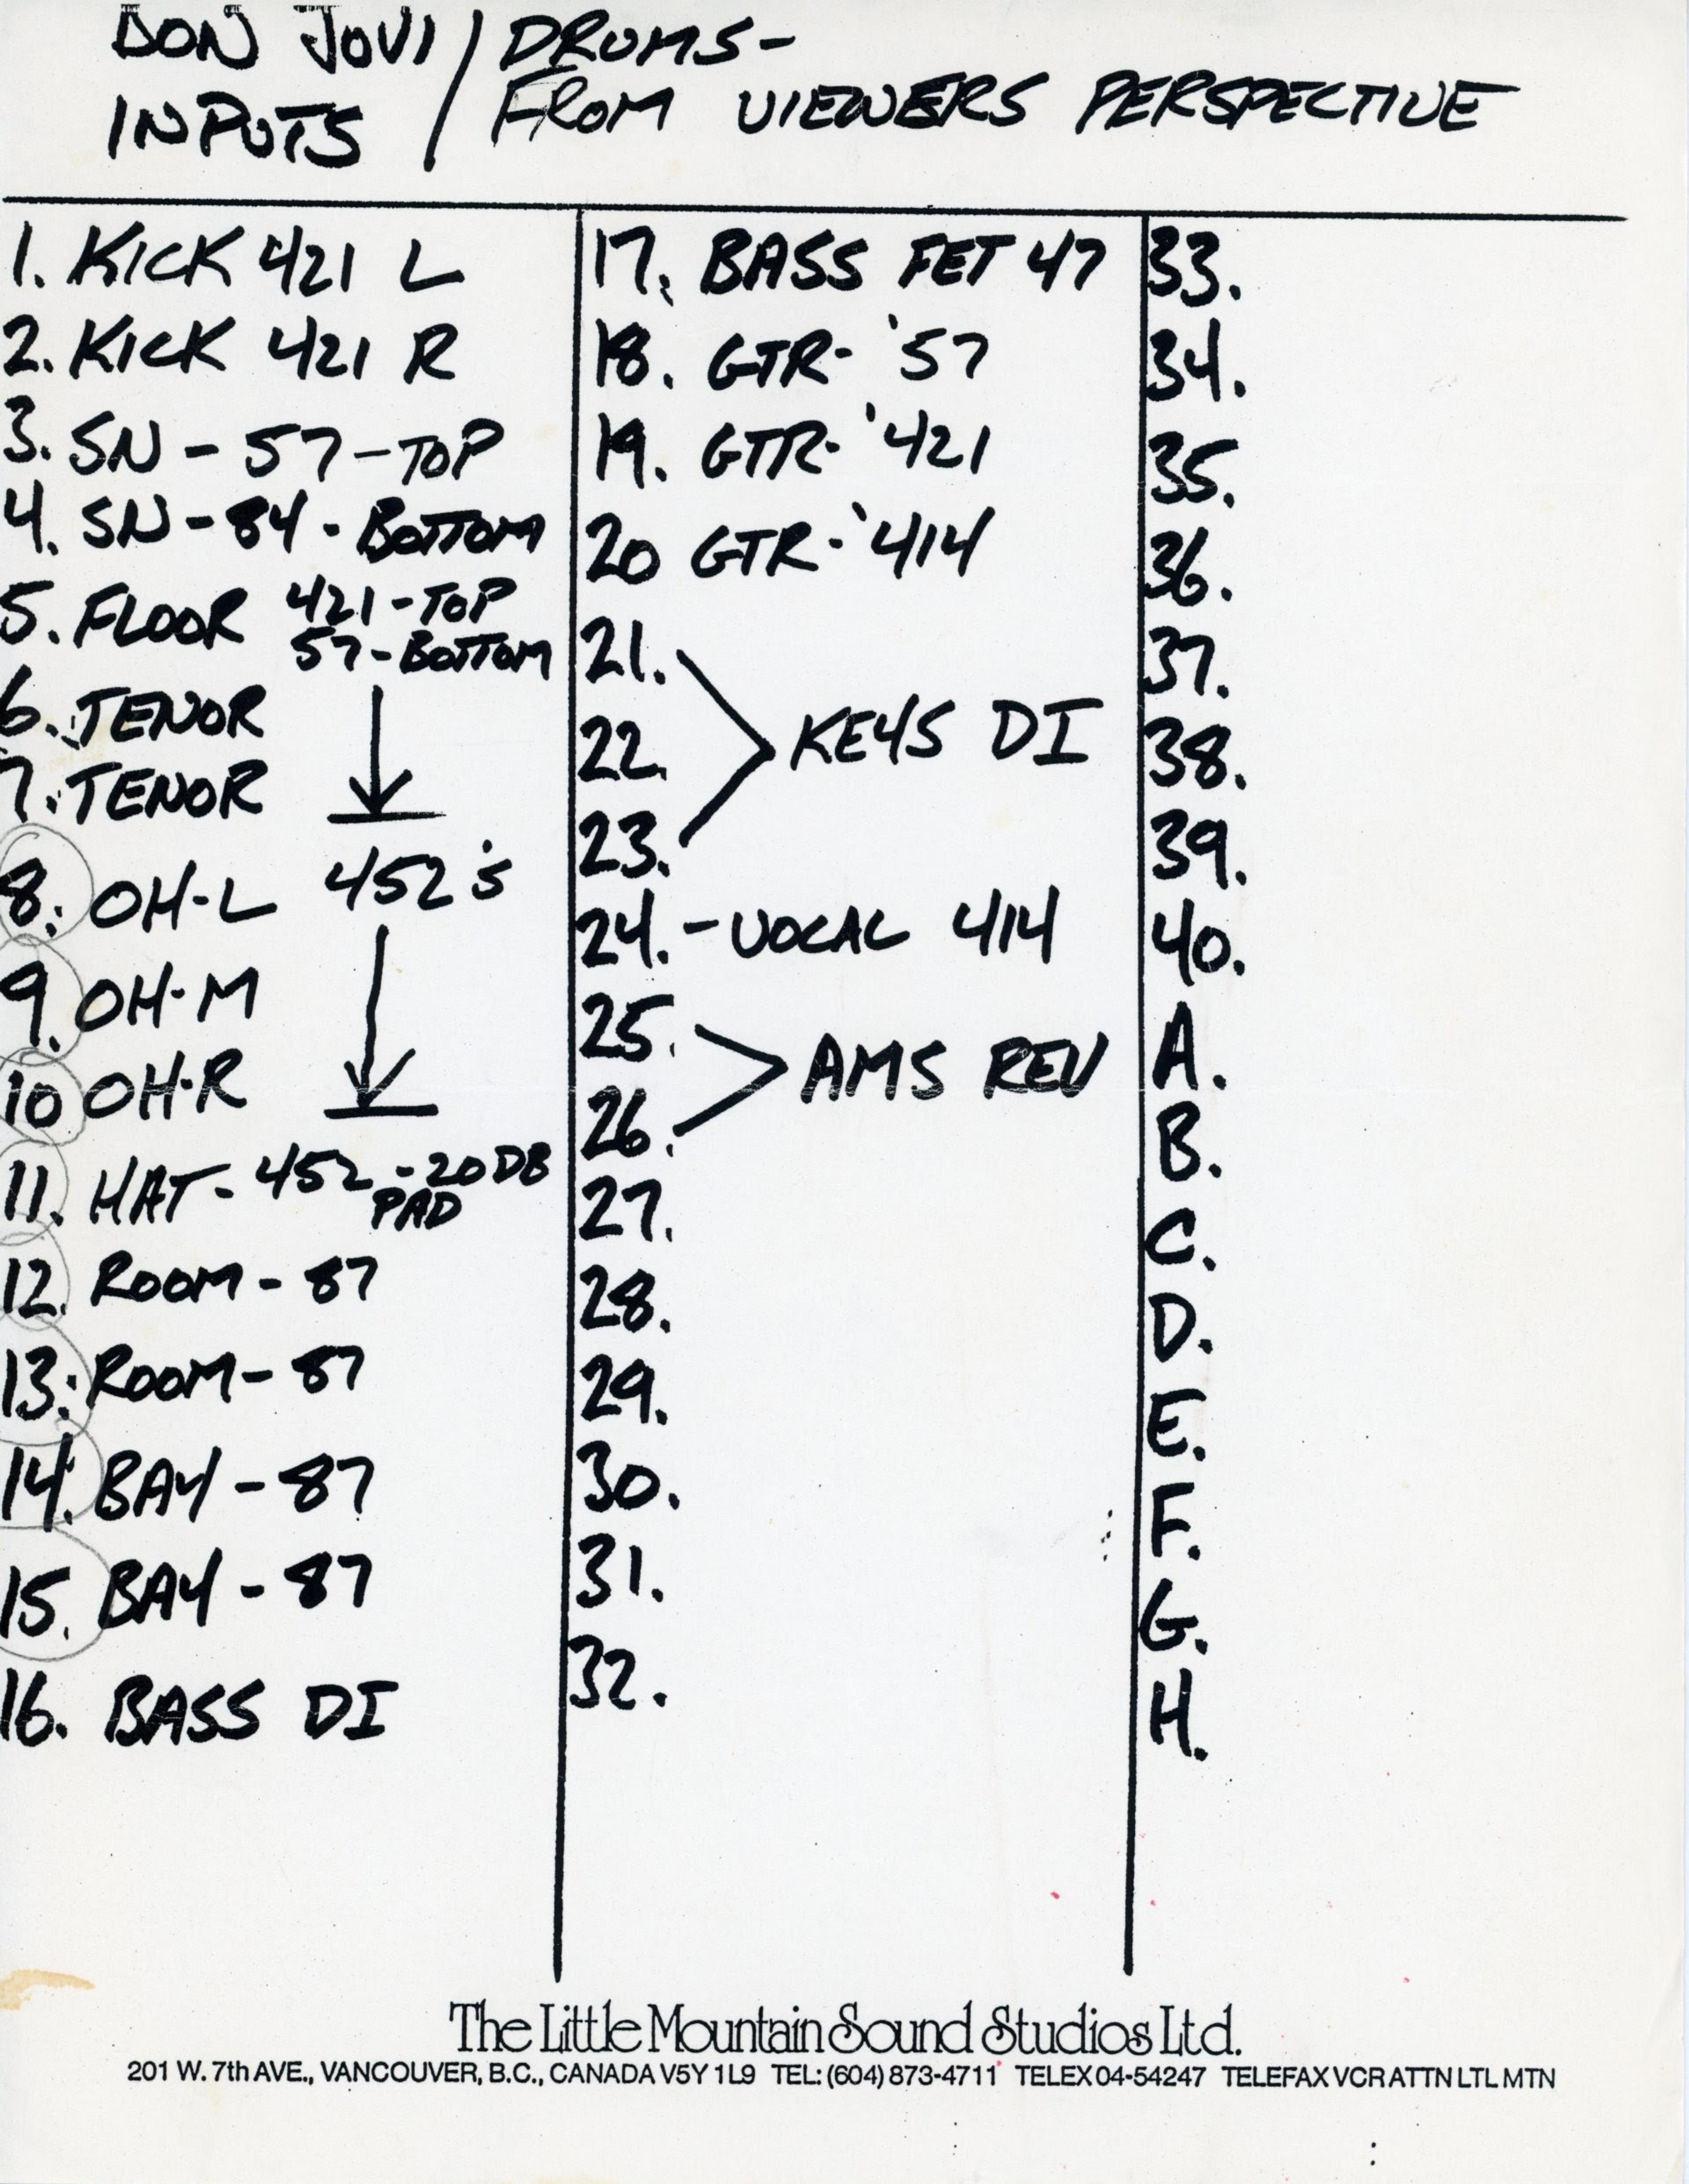 BON JOVI / DRUMS-
INPUTS / FROM VIEWERS PERSPECTIVE
1. KICK 421 L
2. KICK 421 R
3. SN - 57 - TOP
4. SN - 84 - BOTTOM
5. FLOOR 421 - TOP
57 - BOTTOM
6. TENOR
7. TENOR
8. OH-L 452's
9. OH-M
10 OH-R
11. HAT - 452 -20DB
PAD
12. ROOM - 87
13. ROOM - 87
14. BAY - 87
15. BAY - 87
16. BASS DI
17. BASS FET 47
18. GTR- '57
19. GTR- '421
20 GTR- '414
21.
22. KEYS DI
23.
24. - VOCAL 414
25.
AMS REV
26.
27.
28.
29.
30.
31.
32.
33.
34.
35.
36.
37.
38.
39.
40.
A.
B.
C.
D.
E.
F.
G.
H.
The Little Mountain Sound Studios Ltd.
201 W. 7th AVE., VANCOUVER, B.C., CANADA V5Y 1L9 TEL: (604) 873-4711 TELEX 04-54247 TELEFAX VCR ATTN LTL MTN